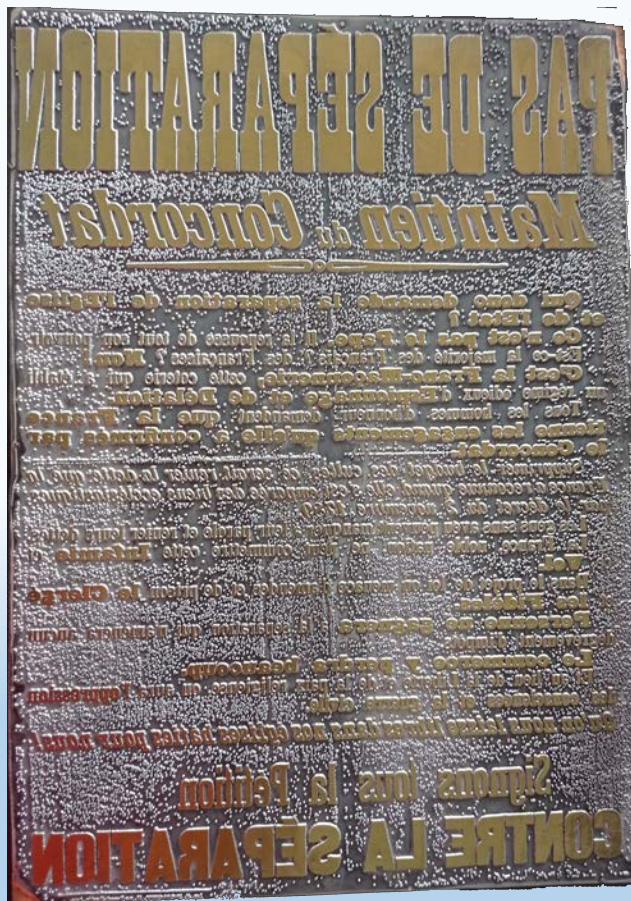 PAS DE SÉPARATION
Maintien du Concordat
Qui donc demande la séparation de l'Eglise
et de l'Etat ?
Ce n'est pas le Pape. Il la repousse de tout son pouvoir
Est-ce la majorité des Français ? des Françaises ? Non !
C'est la Franc-Maçonnerie, cette coterie qui a établi
un régime odieux d'Espionnage et de Délation.
Tous les hommes d'honneur demandent que la France
tienne les engagements qu'elle a confirmés par
le Concordat.
Supprimer le budget des cultes, ce serait renier la dette que la
France a reconnue quand elle s'est emparée des biens ecclésiastiques
par le décret du 2 novembre 1789
Les gens sans aveu peuvent manquer à leur parole et renier leurs dettes
La France, noble nation ne peut commettre cette Infamie et
Vol.
Dans le projet de loi, on menace d'amendes et de prison le Clergé
et les Fidèles.
Personne ne gagnera à la séparation qui n'amènera aucun
dégrèvement d'impôts
Le commerce y perdra beaucoup.
Et au lieu de la liberté et de la paix religieuse on aura l'oppression
des consciences et la guerre civile
Qu'on nous laisse libres dans nos églises bâties pour nous!
Signons tous la Pétition
CONTRE LA SÉPARATION